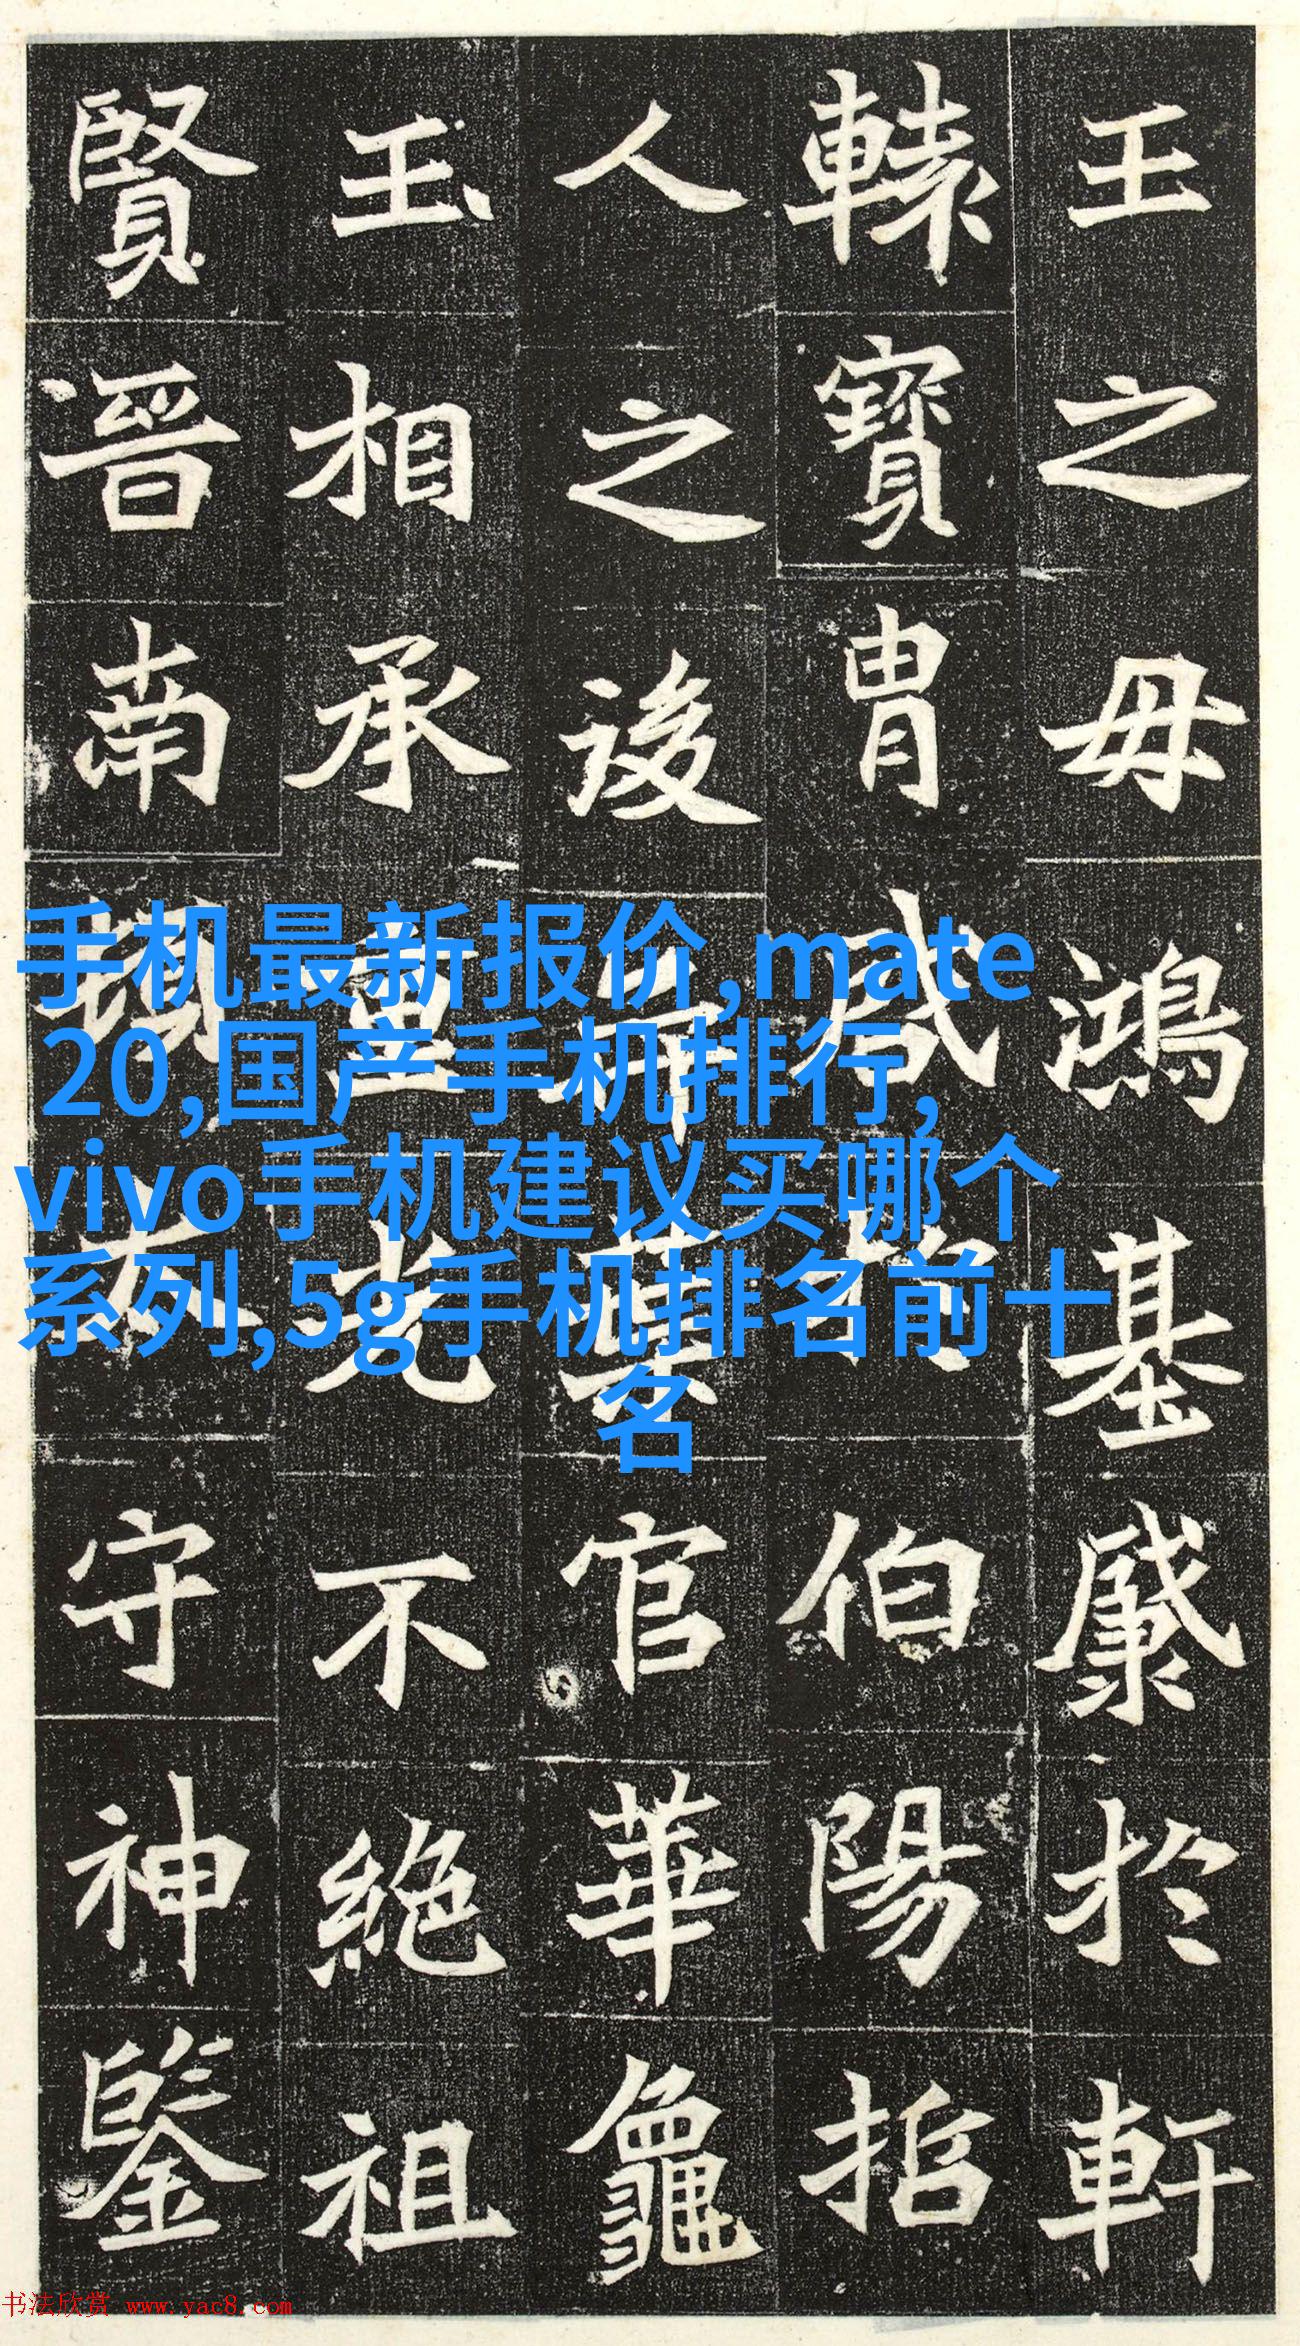 王之毋鴻基於軒
轅寶胄於伯陽
人之後官華龜
玉相承重光不絕祖
賢晉南頓太守神鑒
手机最新报价,mate
20,国产手机排行,
vivo手机建议买哪个
系列,5g手机排名前十
名
书法欣赏 www.yac8.com